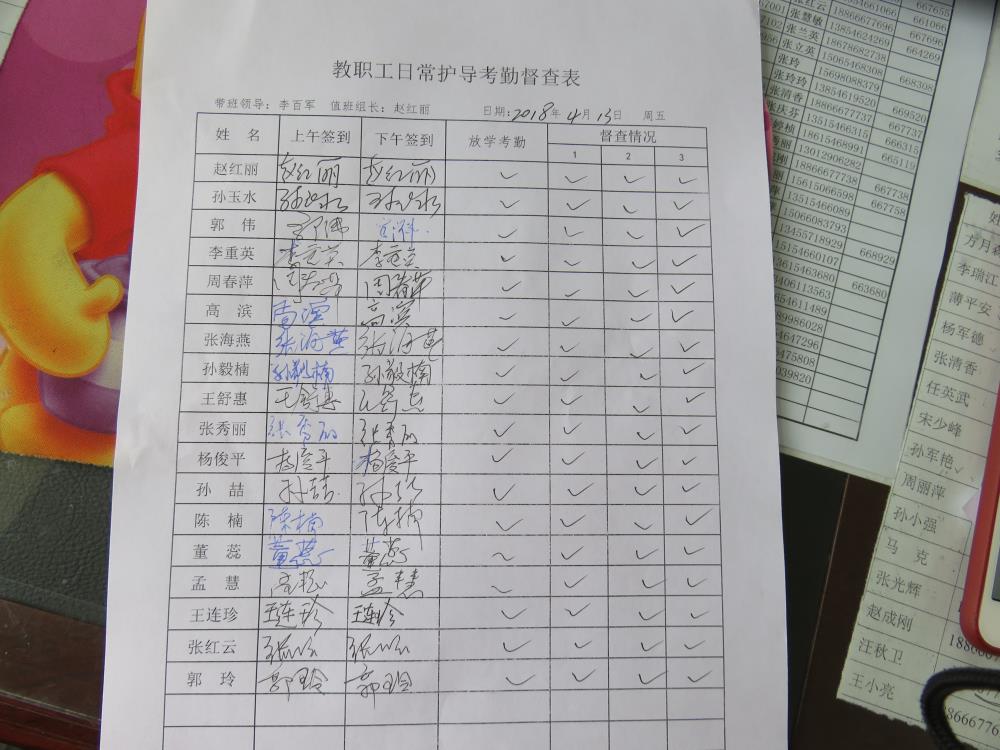 教职工日常护导考勤督查表
带班领导：李百军 值班组长：赵红丽 日期：2018年4月13日 周五
姓 名 上午签到 下午签到 放学考勤 督查情况
1 2 3
赵红丽 赵红丽 赵红丽 ✓ ✓ ✓ ✓
孙玉水 孙玉水 孙玉水 ✓ ✓ ✓ ✓
郭 伟 郭伟 ✓ ✓ ✓ ✓
李重英 李重英 李重英 ✓ ✓ ✓ ✓
周春萍 周春萍 周春萍 ✓ ✓ ✓ ✓
高 滨 高滨 高滨 ✓ ✓ ✓ ✓
张海燕 张海燕 张海燕 ✓ ✓ ✓ ✓
孙毅楠 孙毅楠 孙毅楠 ✓ ✓ ✓ ✓
王舒惠 王舒惠 王舒惠 ✓ ✓ ✓ ✓
张秀丽 张秀丽 张秀丽 ✓ ✓ ✓ ✓
杨俊平 杨俊平 杨俊平 ✓ ✓ ✓ ✓
孙 喆 孙喆 孙喆 ✓ ✓ ✓ ✓
陈 楠 陈楠 陈楠 ✓ ✓ ✓ ✓
董 蕊 董蕊 董蕊 ✓ ✓ ✓ ✓
孟 慧 孟慧 ✓ ✓ ✓ ✓
王连珍 王连珍 王连珍 ✓ ✓ ✓ ✓
张红云 张红云 张红云 ✓ ✓ ✓ ✓
郭 玲 郭玲 郭玲 ✓ ✓ ✓ ✓
张红云 13854661066 667655
张慧敏 18866677696 661066
张兰英 13854624269 667696
张立英 18678682738 664269
张玲 15065468308
张玲玲 15698088379 668308
张清香 13854619520
张庆芬 18866667737 669520
13515466315 667737
18615468991 666315
13012906282 665119
18866677738
15615066598 667738
13515466089 667758
15066083793
13455718929
15154660107
13615463680 668929
663680
李瑞江
薄平安
杨军德
张清香
任英武
宋少峰
孙军艳
周丽萍
孙小强
马 克
张光辉
赵成刚
汪秋卫
王小亮